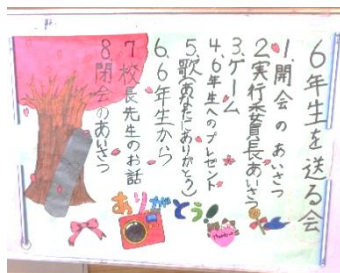 6年生を送る会
1.開会のあいさつ
2.実行委員長あいさつ
3.ゲーム
4.6年生へのプレゼント
5.歌(あなたにありがとう)
6.6年生から
7校長先生のお話
8閉会のあいさつ
ありがとう!